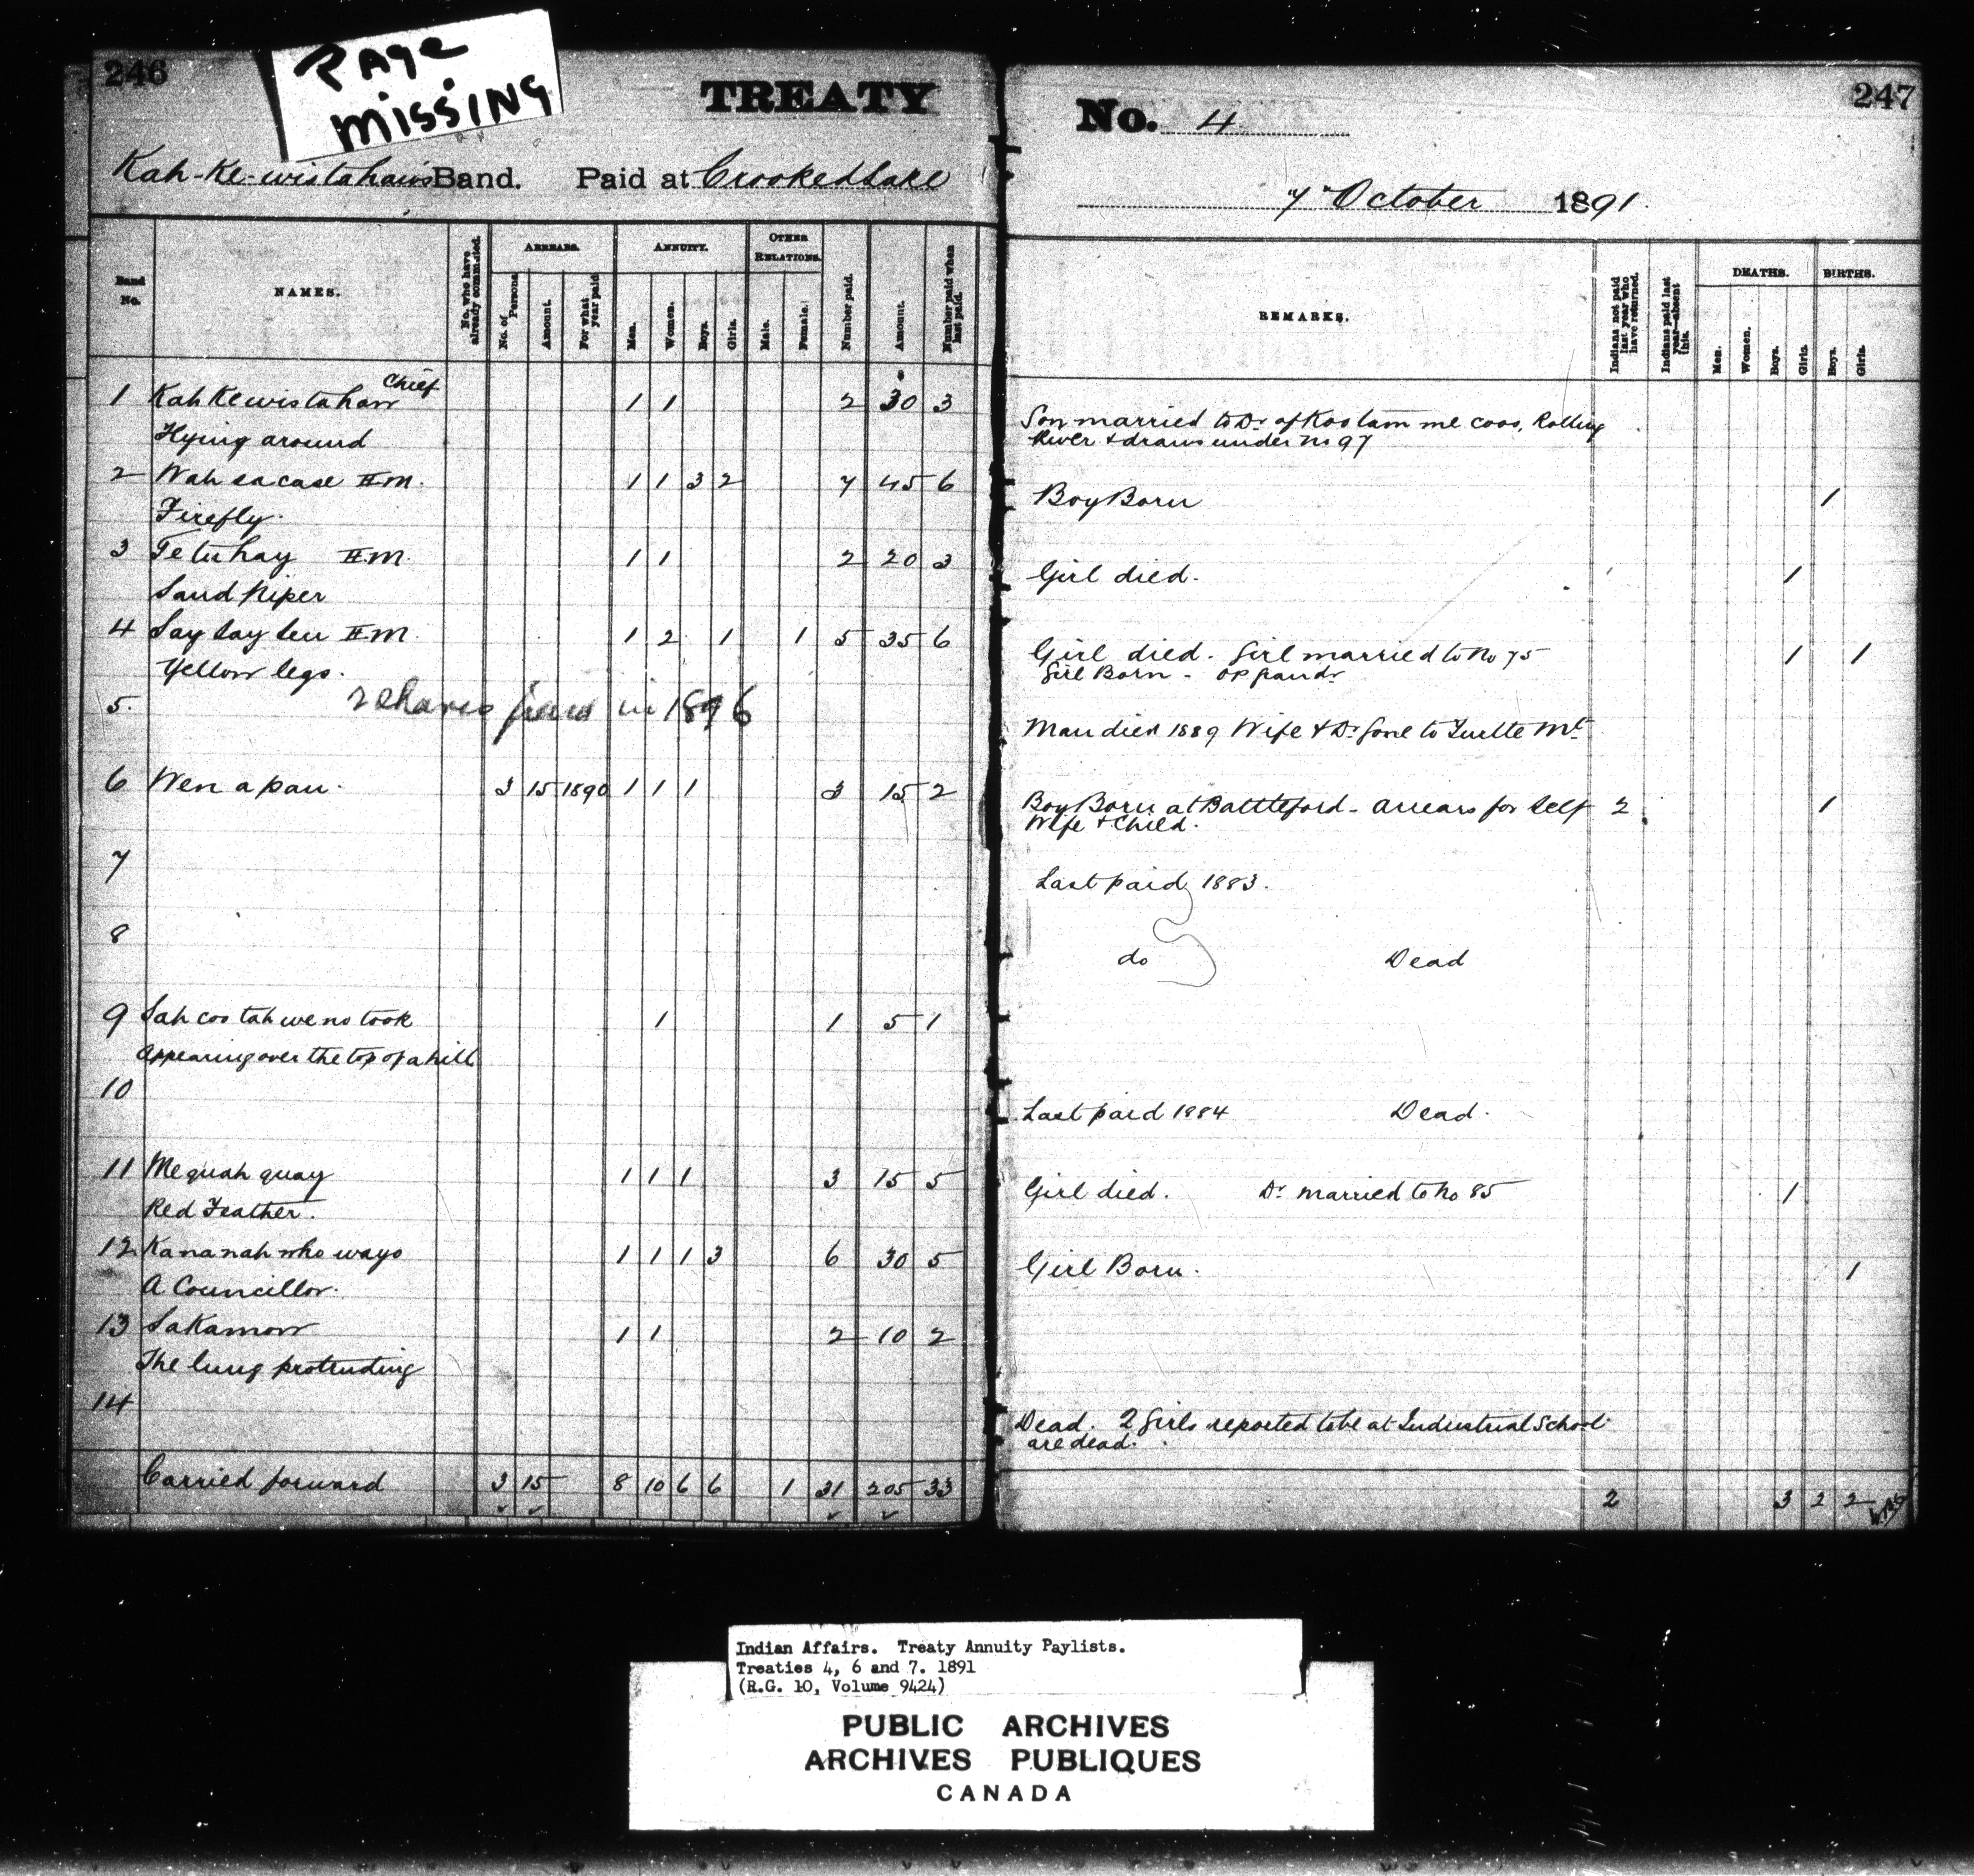 246
PAGE
MISSING
TREATY
Kah-Ke-wistahaw's Band. Paid at Crooked Lake
No. 4
247
7" October 1891.
Band No.
NAMES.
No. who have already commuted.
ARREARS.
No. of Persons
Amount.
For what year paid
ANNUITY.
Men.
Women.
Boys.
Girls.
OTHER RELATIONS.
Male.
Female.
Number paid.
Amount.
Number paid when last paid.
REMARKS.
Indians not paid last year who have returned.
Indians paid last year—absent this.
DEATHS.
Men.
Women.
Boys.
Girls.
BIRTHS.
Boys.
Girls.
Chief
1 Kah Kewistahaw 1 1 2 $30 3
Flying around
Son married to Dr of Kootam me coos, Rolling
River & draws under No 97
2 Wah sa case H.M. 1 1 3 2 7 45 6
Firefly.
Boy Born 1
3 Te tu hay H.M. 1 1 2 20 3
Sand Piper
Girl died. 1
4 Say Say Seu H.M. 1 2 1 1 5 35 6
Yellow legs.
Girl died. Girl married to No 75 1 1
Girl Born - op Grandr
5. 2 Shares paid in 1896
Man died 1889 Wife & Dr gone to Turtle Mt
6 Wen a pau. 3 15 1890 1 1 1 3 15 2
Boy Born at Battleford - arrears for Self 2 1
Wife & Child.
7
Last paid 1883.
8
do Dead
9 Sah coo tah we no took 1 1 5 1
Appearing over the top of a hill
10
Last paid 1884 Dead.
11 Me quah quay 1 1 1 3 15 5
Red Feather.
Girl died. Dr married to No 85 1
12 Kananah who ways 1 1 1 3 6 30 5
A Councillor.
Girl Born. 1
13 Sakamow 1 1 2 10 2
The lung protruding
14
Dead. 2 Girls reported to be at Industrial School
are dead.
Carried forward 3 15 8 10 6 6 1 31 205 33
2 3 2 2
Indian Affairs. Treaty Annuity Paylists.
Treaties 4, 6 and 7. 1891
(R.G. 10, Volume 9424)
PUBLIC ARCHIVES
ARCHIVES PUBLIQUES
CANADA